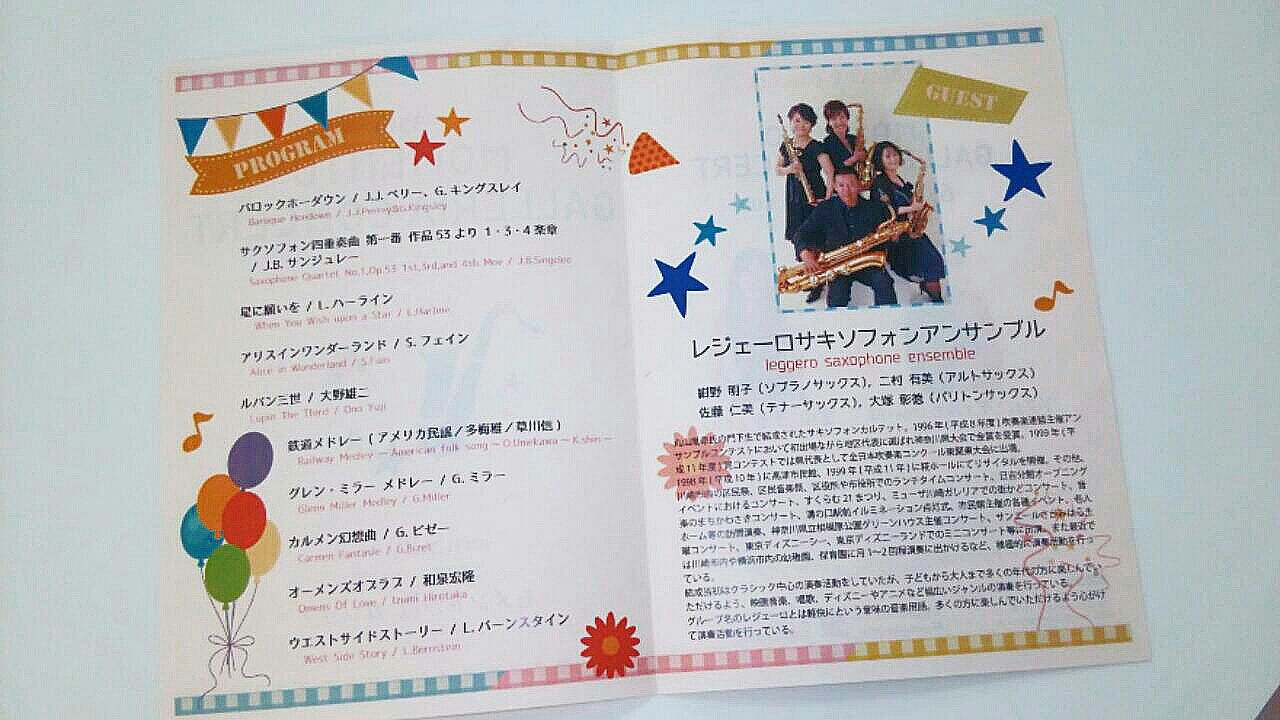 PROGRAM
バロックホーダウン / J.J.ペリー、G.キングスレイ
Baroque Hoedown / J.J.Perrey&G.Kingsley
サクソフォン四重奏曲 第一番 作品53より 1・3・4楽章
/ J.B. サンジュレー
Saxophone Quartet No.1,Op.53 1st,3rd,and 4th Mov / J.B.Singelee
星に願いを / L.ハーライン
When You Wish upon a Star / L.Harline
アリスインワンダーランド / S.フェイン
Alice in Wonderland / S.Fain
ルパン三世 / 大野雄二
Lupin The Third / Ono Yuji
鉄道メドレー ( アメリカ民謡／多梅稚／草川信 )
Railway Medley ～ American folk song ～ O.Umekawa ～ K.shin ～
グレン・ミラー メドレー / G.ミラー
Glenn Miller Medley / G.Miller
カルメン幻想曲 / G.ビゼー
Carmen Fantasie / G.Bizet
オーメンズオブラブ / 和泉宏隆
Omens Of Love / Izumi Hirotaka
ウエストサイドストーリー / L.バーンスタイン
West Side Story / L.Bernstein
GUEST
レジェーロサキソフォンアンサンブル
leggero saxophone ensemble
紺野 明子（ソプラノサックス），二村 有美（アルトサックス）
佐藤 仁美（テナーサックス），大塚 彰徳（バリトンサックス）
氏の門下生で結成されたサキソフォンカルテット。1996年(平成8年度)吹奏楽連盟主催アン
サンブルコンテストにおいて初出場ながら地区代表に選ばれ神奈川県大会で金賞を受賞。1999年(平
成11年度)同コンテストでは県代表として全日本吹奏楽コンクール東関東大会に出場。
1998年(平成10年)に高津市民館、1999年(平成11年)に榎ホールにてリサイタルを開催。その他、
川崎市の区民祭、区民音楽祭、区役所や市役所でのランチタイムコンサート、日吉分館オープニング
イベントにおけるコンサート、すくらむ21まつり、ミューザ川崎ガレリアでの街かどコンサート、音
楽のまちかわさきコンサート、溝の口駅前イルミネーション点灯式、市民館主催の各種イベント、老人
ホーム等の訪問演奏、神奈川県立相模原公園グリーンハウス主催コンサート、サンエールさがみはら主
催コンサート、東京ディズニーシー、東京ディズニーランドでのミニコンサート等に出演。また最近で
は川崎市内や横浜市内の幼稚園、保育園に月1～2回程演奏に出かけるなど、積極的に演奏活動を行っ
ている。
結成当初はクラシック中心の演奏活動をしていたが、子どもから大人まで多くの年代の方に楽しんでい
ただけるよう、映画音楽、唱歌、ディズニーやアニメなど幅広いジャンルの演奏を行っている。
グループ名のレジェーロとは軽快にという意味の音楽用語。多くの方に楽しんでいただけるよう心がけ
て演奏活動を行っている。